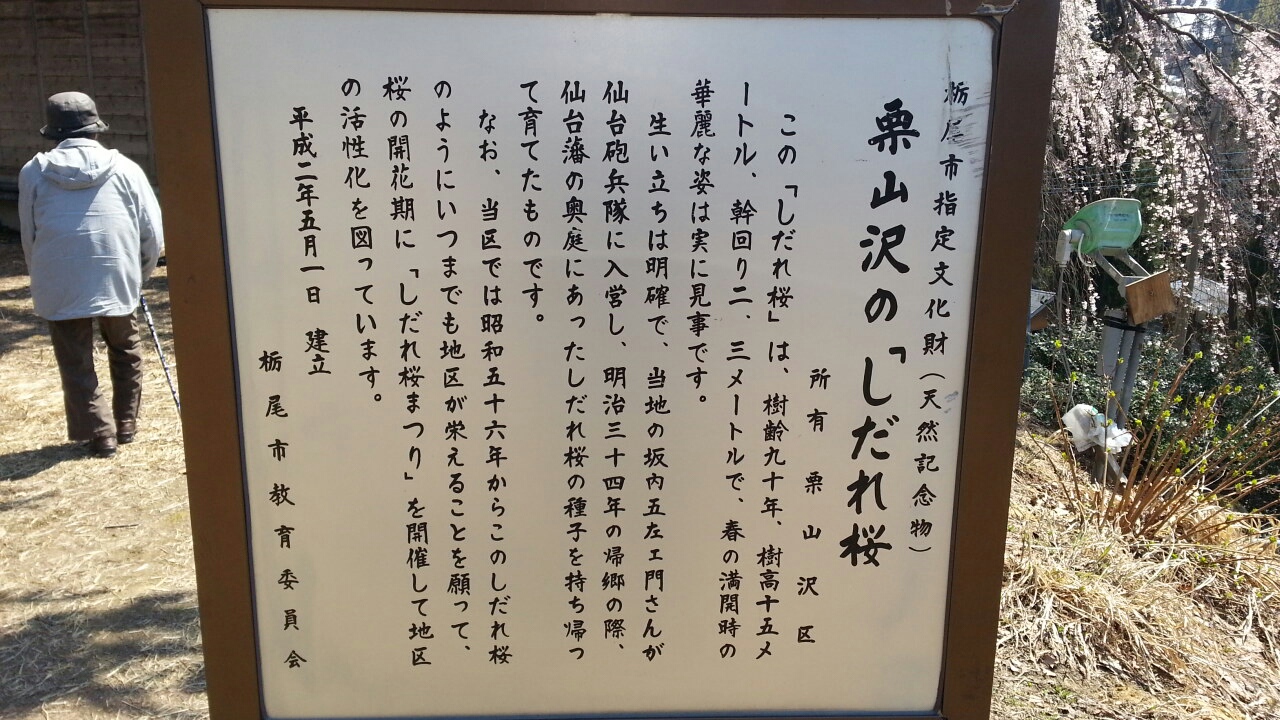 栃尾市指定文化財(天然記念物)
栗山沢の「しだれ桜
所有 栗山沢区
この「しだれ桜」は、樹齢九十年、樹高十五メ
ートル、幹回り二、三メートルで、春の満開時の
華麗な姿は実に見事です。
生い立ちは明確で、当地の坂内五左エ門さんが
仙台砲兵隊に入営し、明治三十四年の帰郷の際、
仙台藩の奥庭にあったしだれ桜の種子を持ち帰っ
て育てたものです。
なお、当区では昭和五十六年からこのしだれ桜
のようにいつまでも地区が栄えることを願って、
桜の開花期に「しだれ桜まつり」を開催して地区
の活性化を図っています。
平成二年五月一日 建立
栃尾市教育委員会